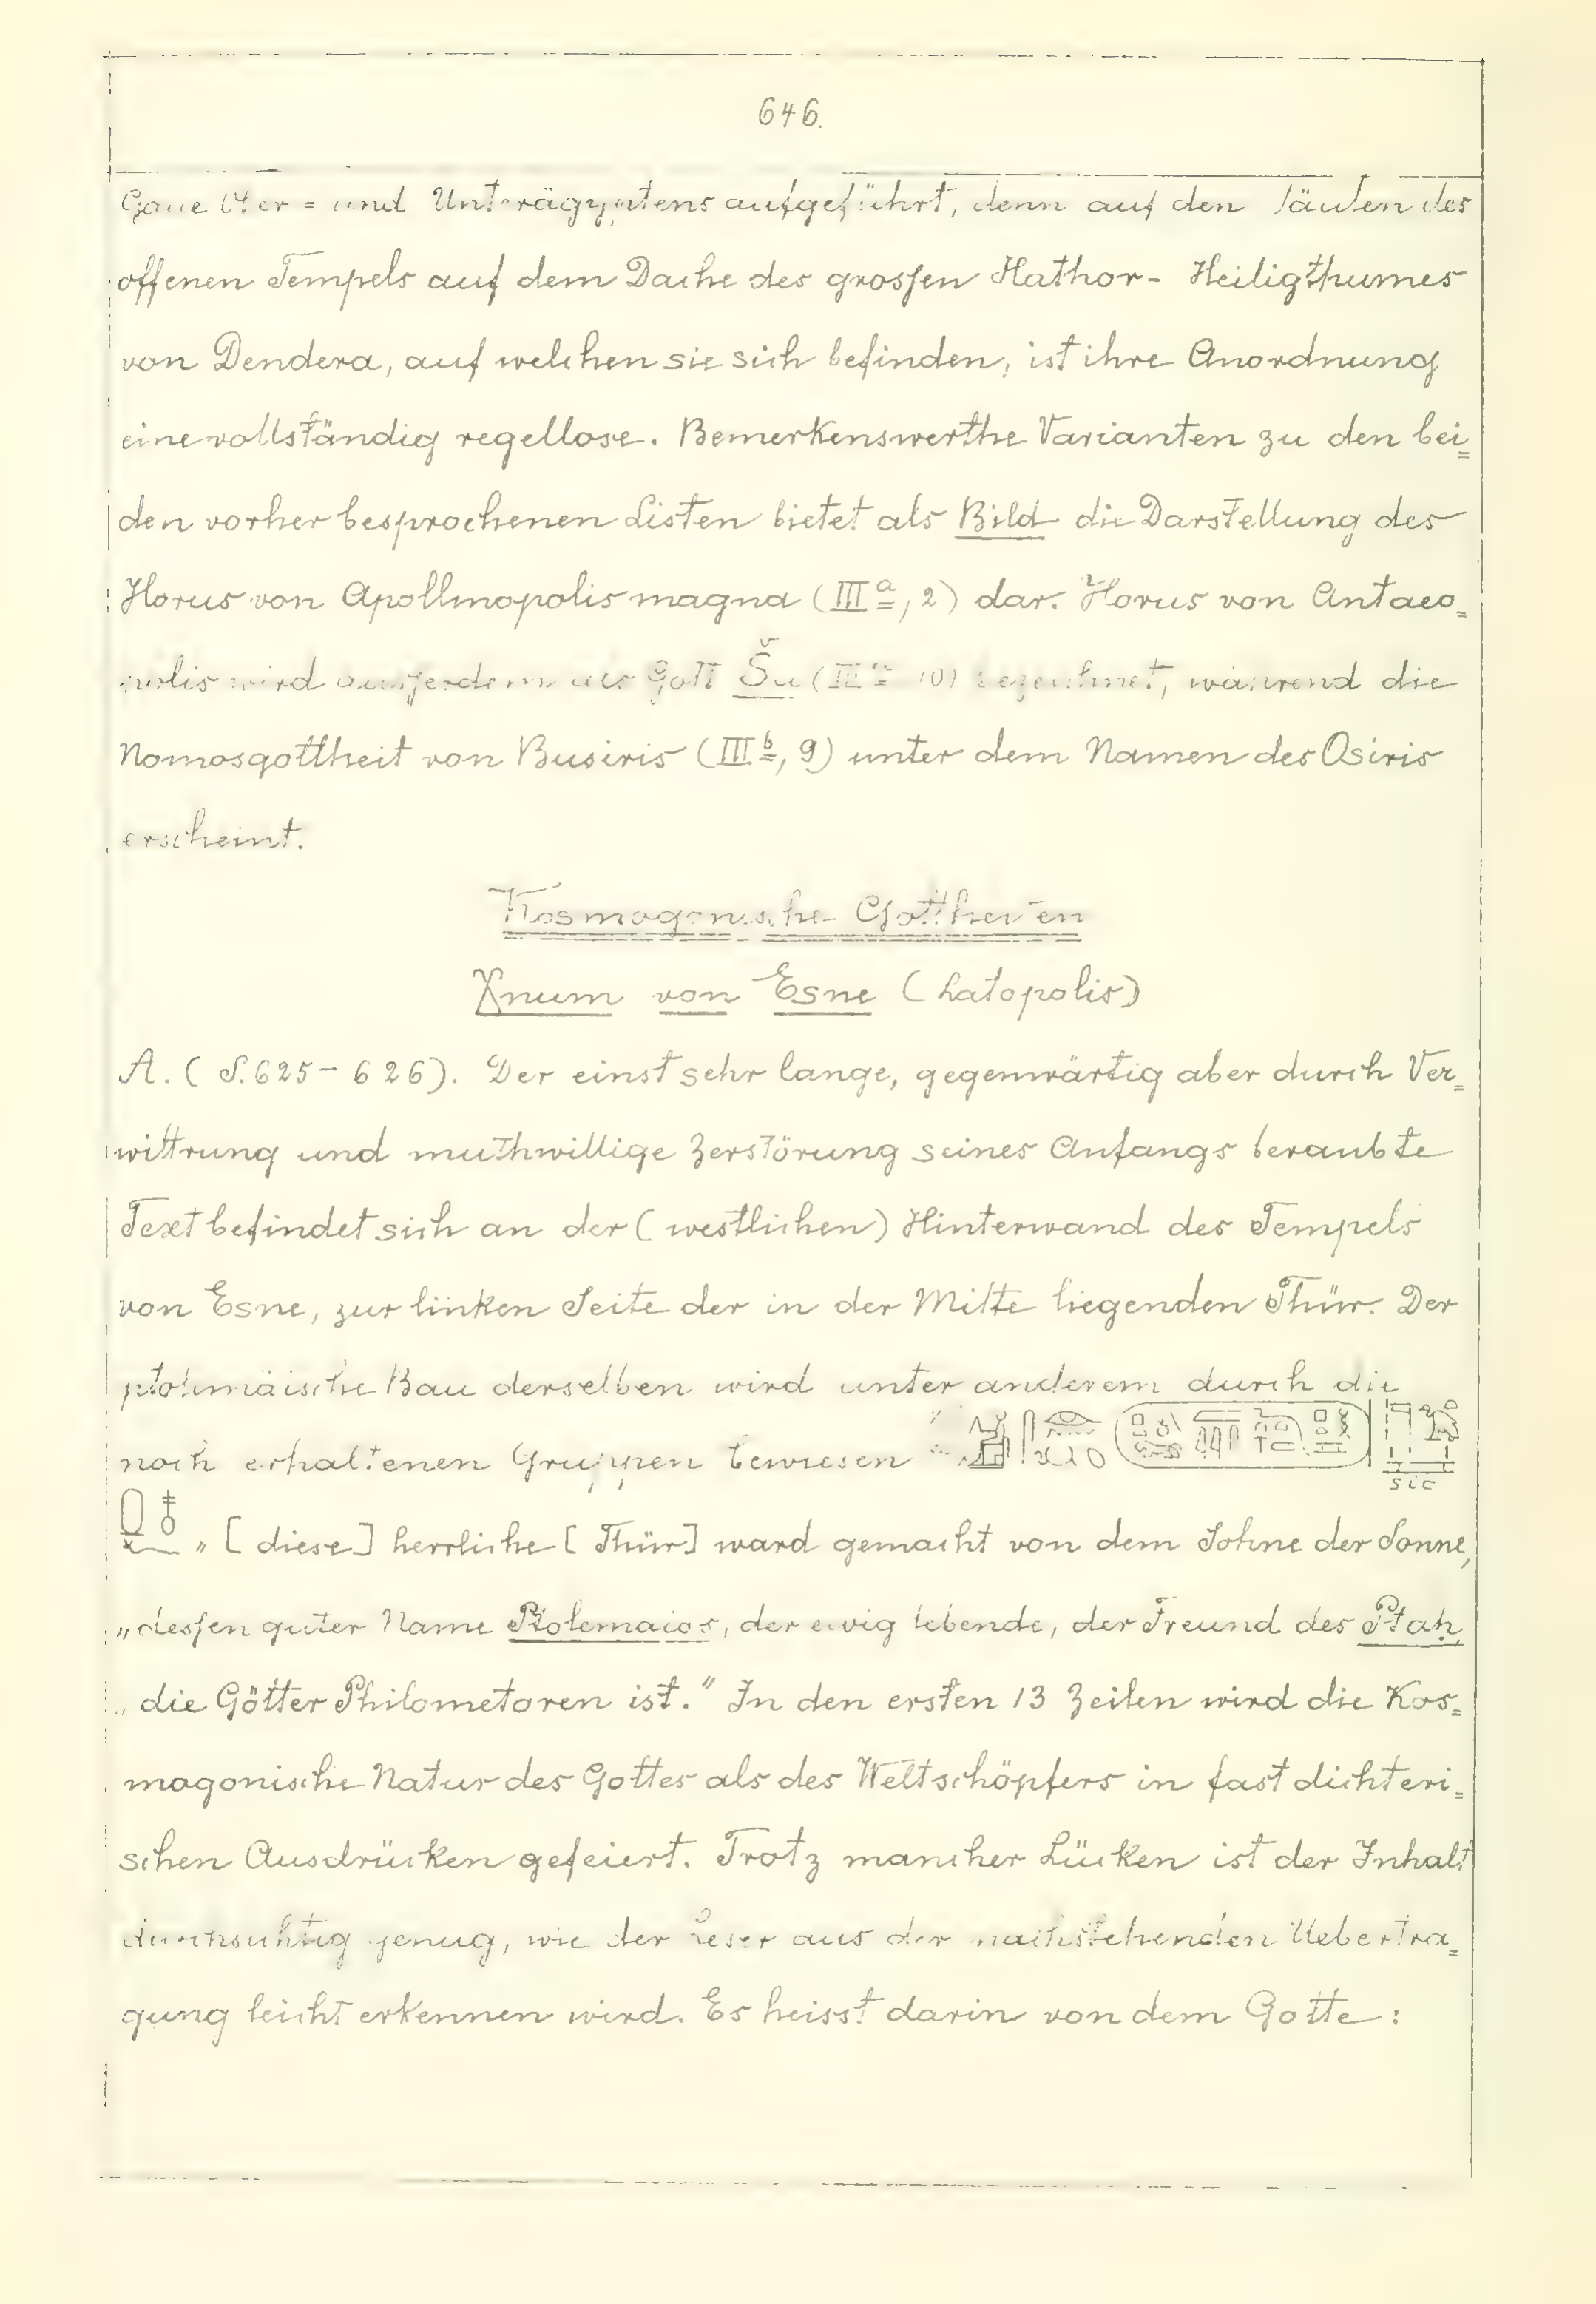 646.
Gaue Ober = und Unterägyptens aufgeführt, denn auf den Säulen des
offenen Tempels auf dem Dache des grossen Hathor- Heiligthumes
von Dendera, auf welchen sie sich befinden, ist ihre Anordnung
eine vollständig regellose. Bemerkenswerthe Varianten zu den bei=
den vorher besprochenen Listen bietet als Bild die Darstellung des
Horus von Apollinopolis magna (III a, 2) dar. Horus von Antaeo=
polis wird ausserdem als Gott Šu (III a 10) bezeichnet, während die
Nomosgottheit von Busiris (III b, 9) unter dem Namen des Osiris
erscheint.
Kosmogonische Gottheiten
Xnum von Esne (Latopolis)
A. (S. 625 - 626). Der einst sehr lange, gegenwärtig aber durch Ver=
wittrung und muthwillige Zerstörung seines Anfangs beraubte
Text befindet sich an der (westlichen) Hinterwand des Tempels
von Esne, zur linken Seite der in der Mitte liegenden Thür. Der
ptolemäische Bau derselben wird unter anderem durch die
noch erhaltenen Gruppen bewiesen
sic
„ [diese] herrliche [Thür] ward gemacht von dem Sohne der Sonne,
„dessen guter Name Ptolemaios, der ewig lebende, der Freund des Ptaḥ,
„die Götter Philometoren ist." In den ersten 13 Zeilen wird die Kos=
mogonische Natur des Gottes als des Weltschöpfers in fast dichteri=
schen Ausdrücken gefeiert. Trotz mancher Lücken ist der Inhalt
durchsichtig genug, wie der Leser aus der nachstehenden Uebertra=
gung leicht erkennen wird. Es heisst darin von dem Gotte: